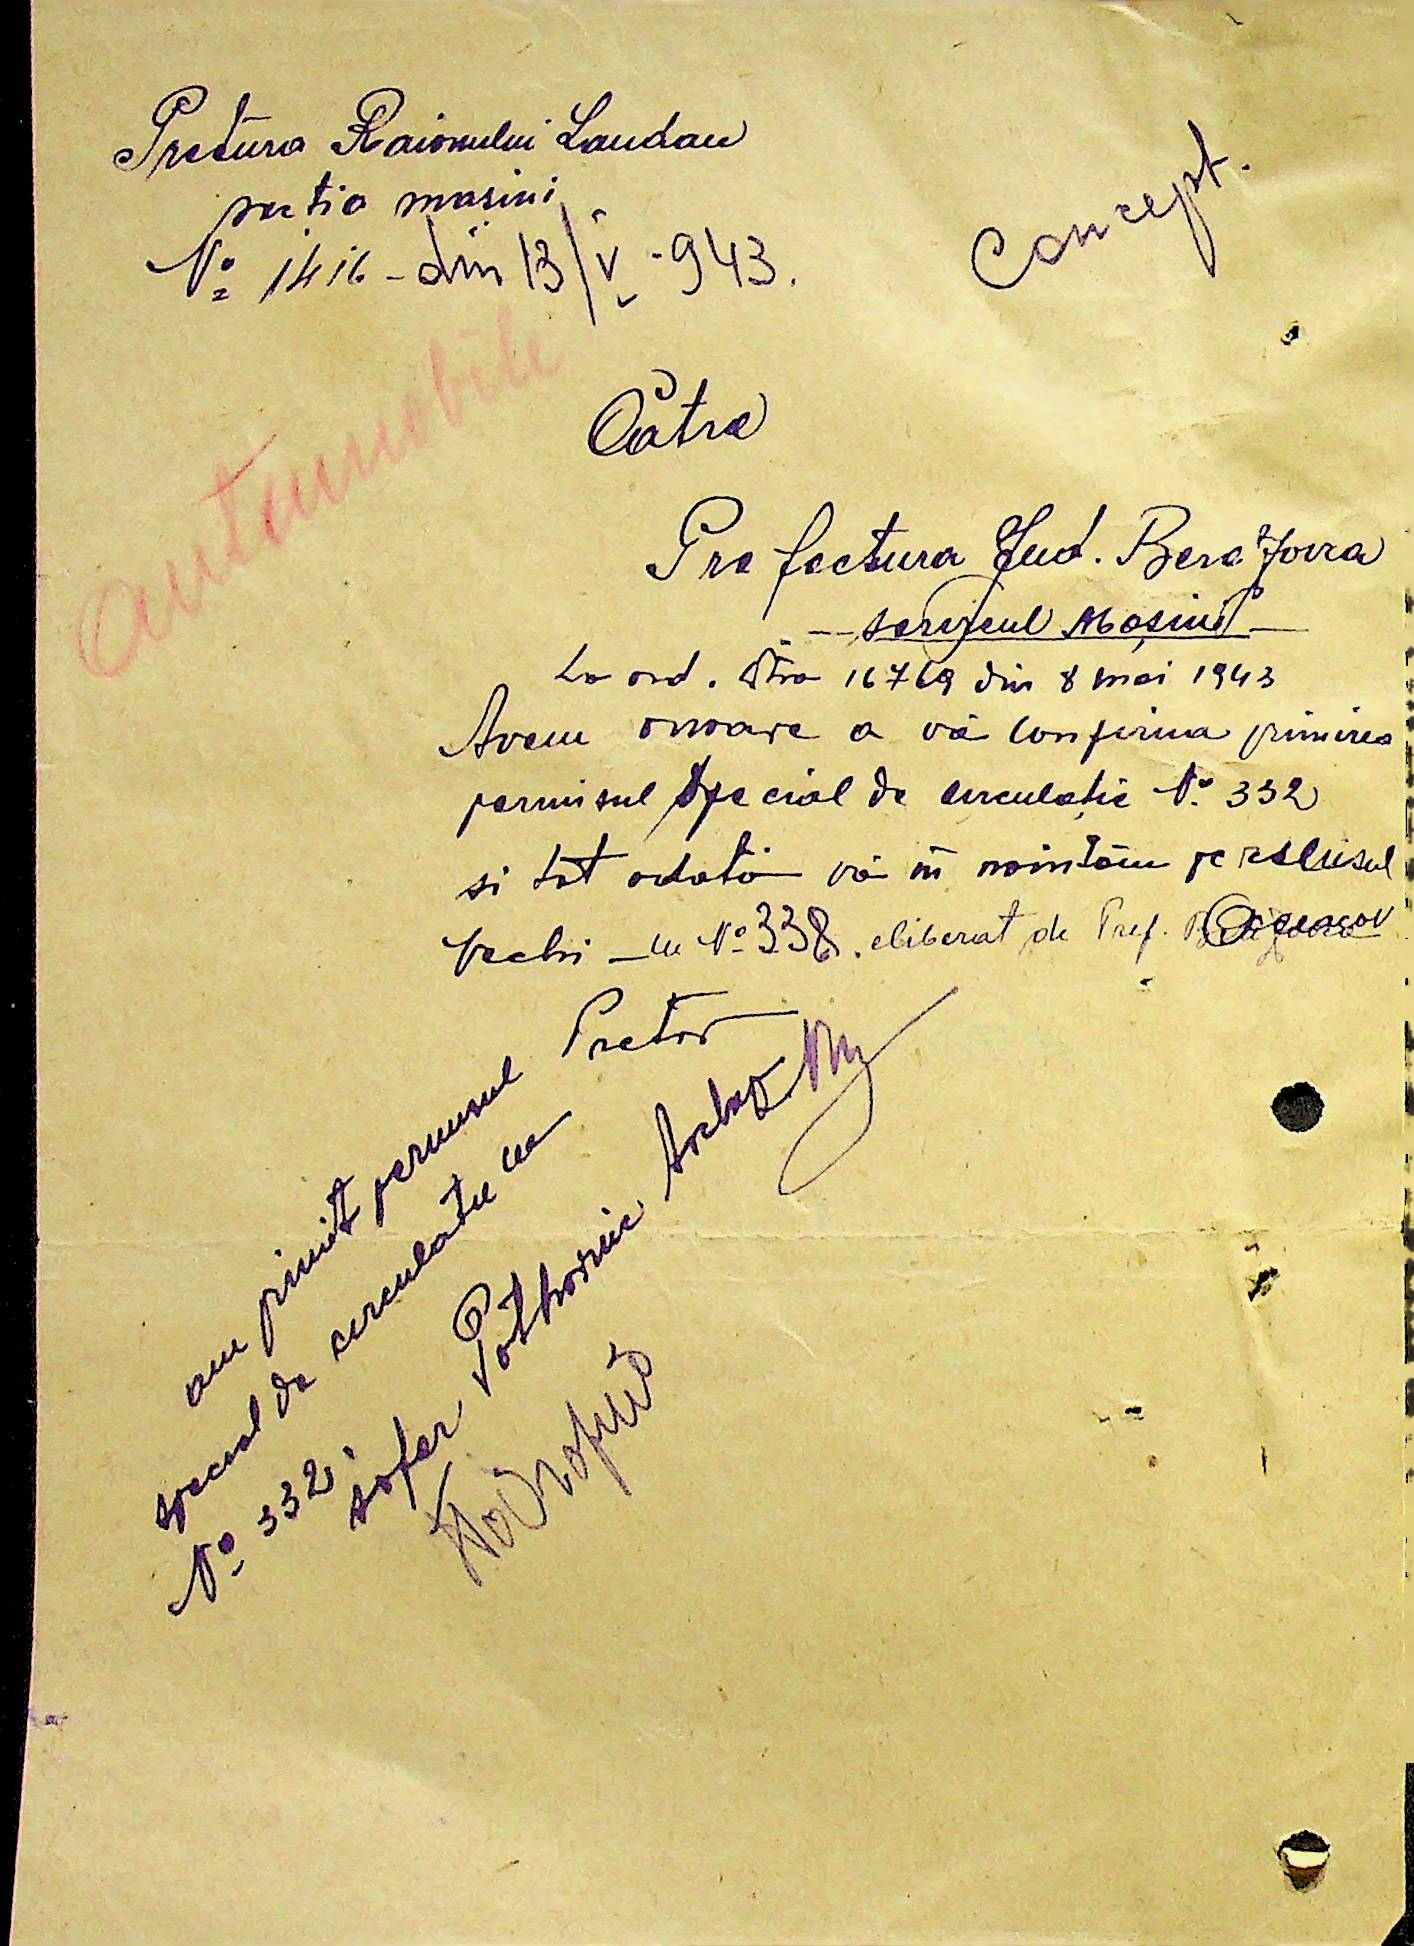 Pretura Raionului Landau
sectia masini
Nº 1416 - din 13/V - 943.
Concept.
automobile
Cătra
Prefectura Jud. Berezovca
- Serviciul Mașini -
La ord. Nro 16769 din 8 mai 1943
Avem onoare a vă confirma primirea
permisul special de circulație Nº 332
si tot odată vă în naintăm pe
vechi - cu Nº 338. eliberat de Pref.
Pretor
am primit permisul
special de circulatie cu
Nº 332.
sofer Pothornic